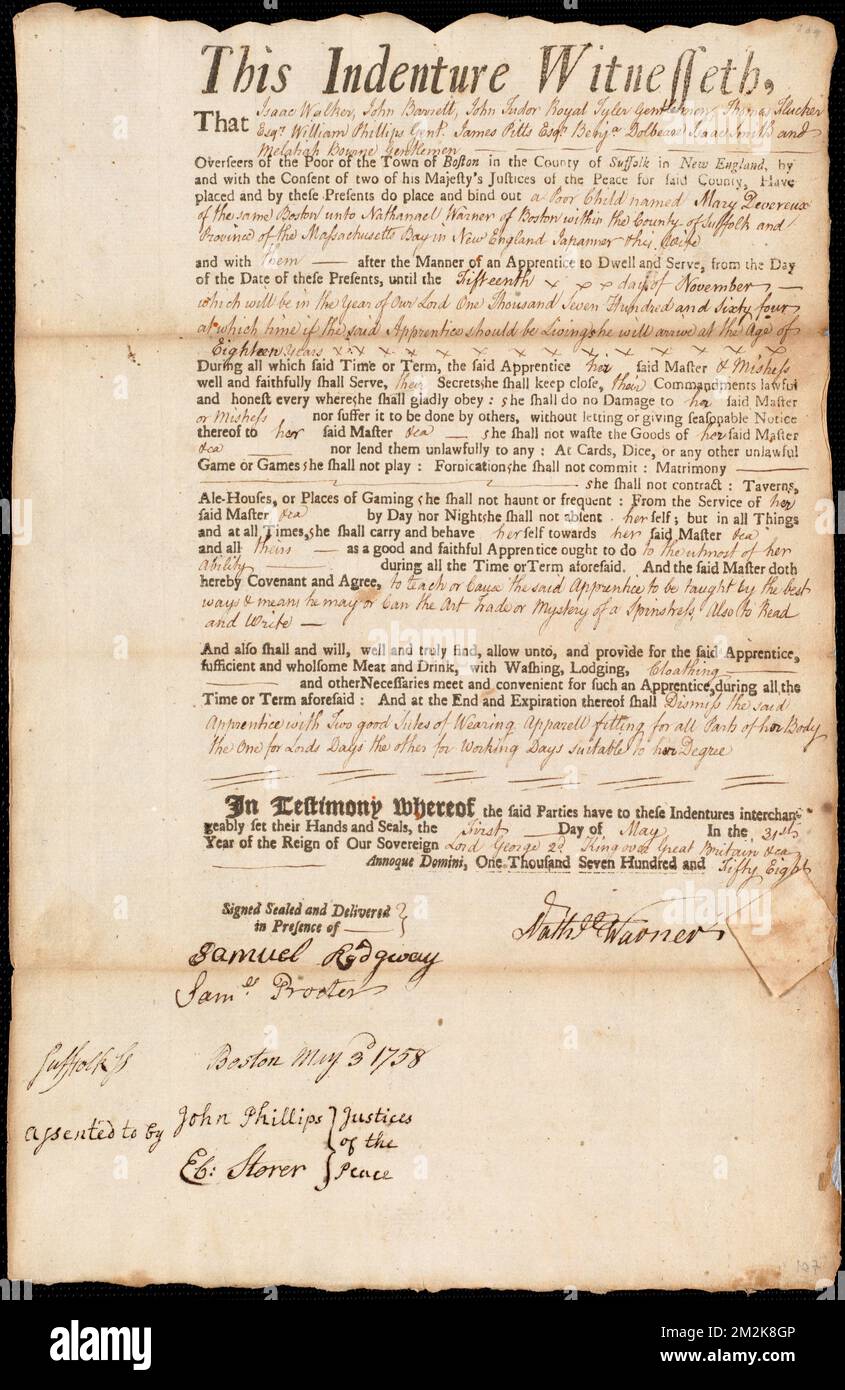 209
This Indenture Witneſſeth,
That Isaac Walker, John Barrett, John Tudor Royal Tyler Gentlemen, Thomas Flucker
Esqr. William Phillips Gent. James Pitts Esqr. Benja. Dolbeare Isaac Smith and
Melatiah Bourne Gentlemen
Overseers of the Poor of the Town of Boston in the County of Suffolk in New England, by
and with the Consent of two of his Majesty's Justices of the Peace for said County, Have
placed and by these Presents do place and bind out a Poor Child named Mary Devereux
of the same Boston unto Nathanael Warner of Boston within the County of Suffolk and
Province of the Massachusetts Bay in New England Japanner & his Wife
and with them — after the Manner of an Apprentice to Dwell and Serve, from the Day
of the Date of these Presents, until the Fifteenth x x x day of November —
which will be in the Year of Our Lord One Thousand Seven Hundred and Sixty four
at which time if the said Apprentice should be Living she will arrive at the Age of
Eighteen Years x x x x x x x x x x x x x
During all which said Time or Term, the said Apprentice her said Master & Mistress
well and faithfully shall Serve, their Secrets she shall keep close, their Commandments lawful
and honest every where she shall gladly obey : she shall do no Damage to her said Master
or Mistress nor suffer it to be done by others, without letting or giving seasonable Notice
thereof to her said Master &ca — she shall not waste the Goods of her said Master
&ca — nor lend them unlawfully to any : At Cards, Dice, or any other unlawful
Game or Games she shall not play : Fornication she shall not commit : Matrimony —
she shall not contract : Taverns,
Ale-Houses, or Places of Gaming she shall not haunt or frequent : From the Service of her
said Master &ca by Day nor Night she shall not absent her self ; but in all Things
and at all Times, she shall carry and behave her self towards her said Master &ca
and all theirs — as a good and faithful Apprentice ought to do to the utmost of her
ability — during all the Time or Term aforesaid. And the said Master doth
hereby Covenant and Agree, to teach or Cause the said Apprentice to be taught by the best
ways & means he may or Can the Art Trade or Mystery of a Spinstress, Also to Read
and Write —
And also shall and will, well and truly find, allow unto, and provide for the said Apprentice,
sufficient and wholsome Meat and Drink, with Washing, Lodging, Cloathing —
— and other Necessaries meet and convenient for such an Apprentice, during all the
Time or Term aforesaid : And at the End and Expiration thereof shall Dismiss the said
Apprentice with Two good Sutes of Wearing Apparell fitting for all Parts of her Body
the One for Lords Days the other for Working Days suitable to her Degree
In Testimony whereof the said Parties have to these Indentures interchan-
geably set their Hands and Seals, the First — Day of May In the 31st
Year of the Reign of Our Sovereign Lord George 2d King over Great Britain &ca
— Annoque Domini, One Thousand Seven Hundred and Fifty Eight
Signed Sealed and Delivered
in Presence of —
Nathl. Warner
Samuel Rydgway
Saml. Procter
Suffolk ss Boston May 3d 1758
assented to by John Phillips } Justices
of the
Eb: Storer } Peace
107
alamy
Image ID: 2M2K8GP
www.alamy.com